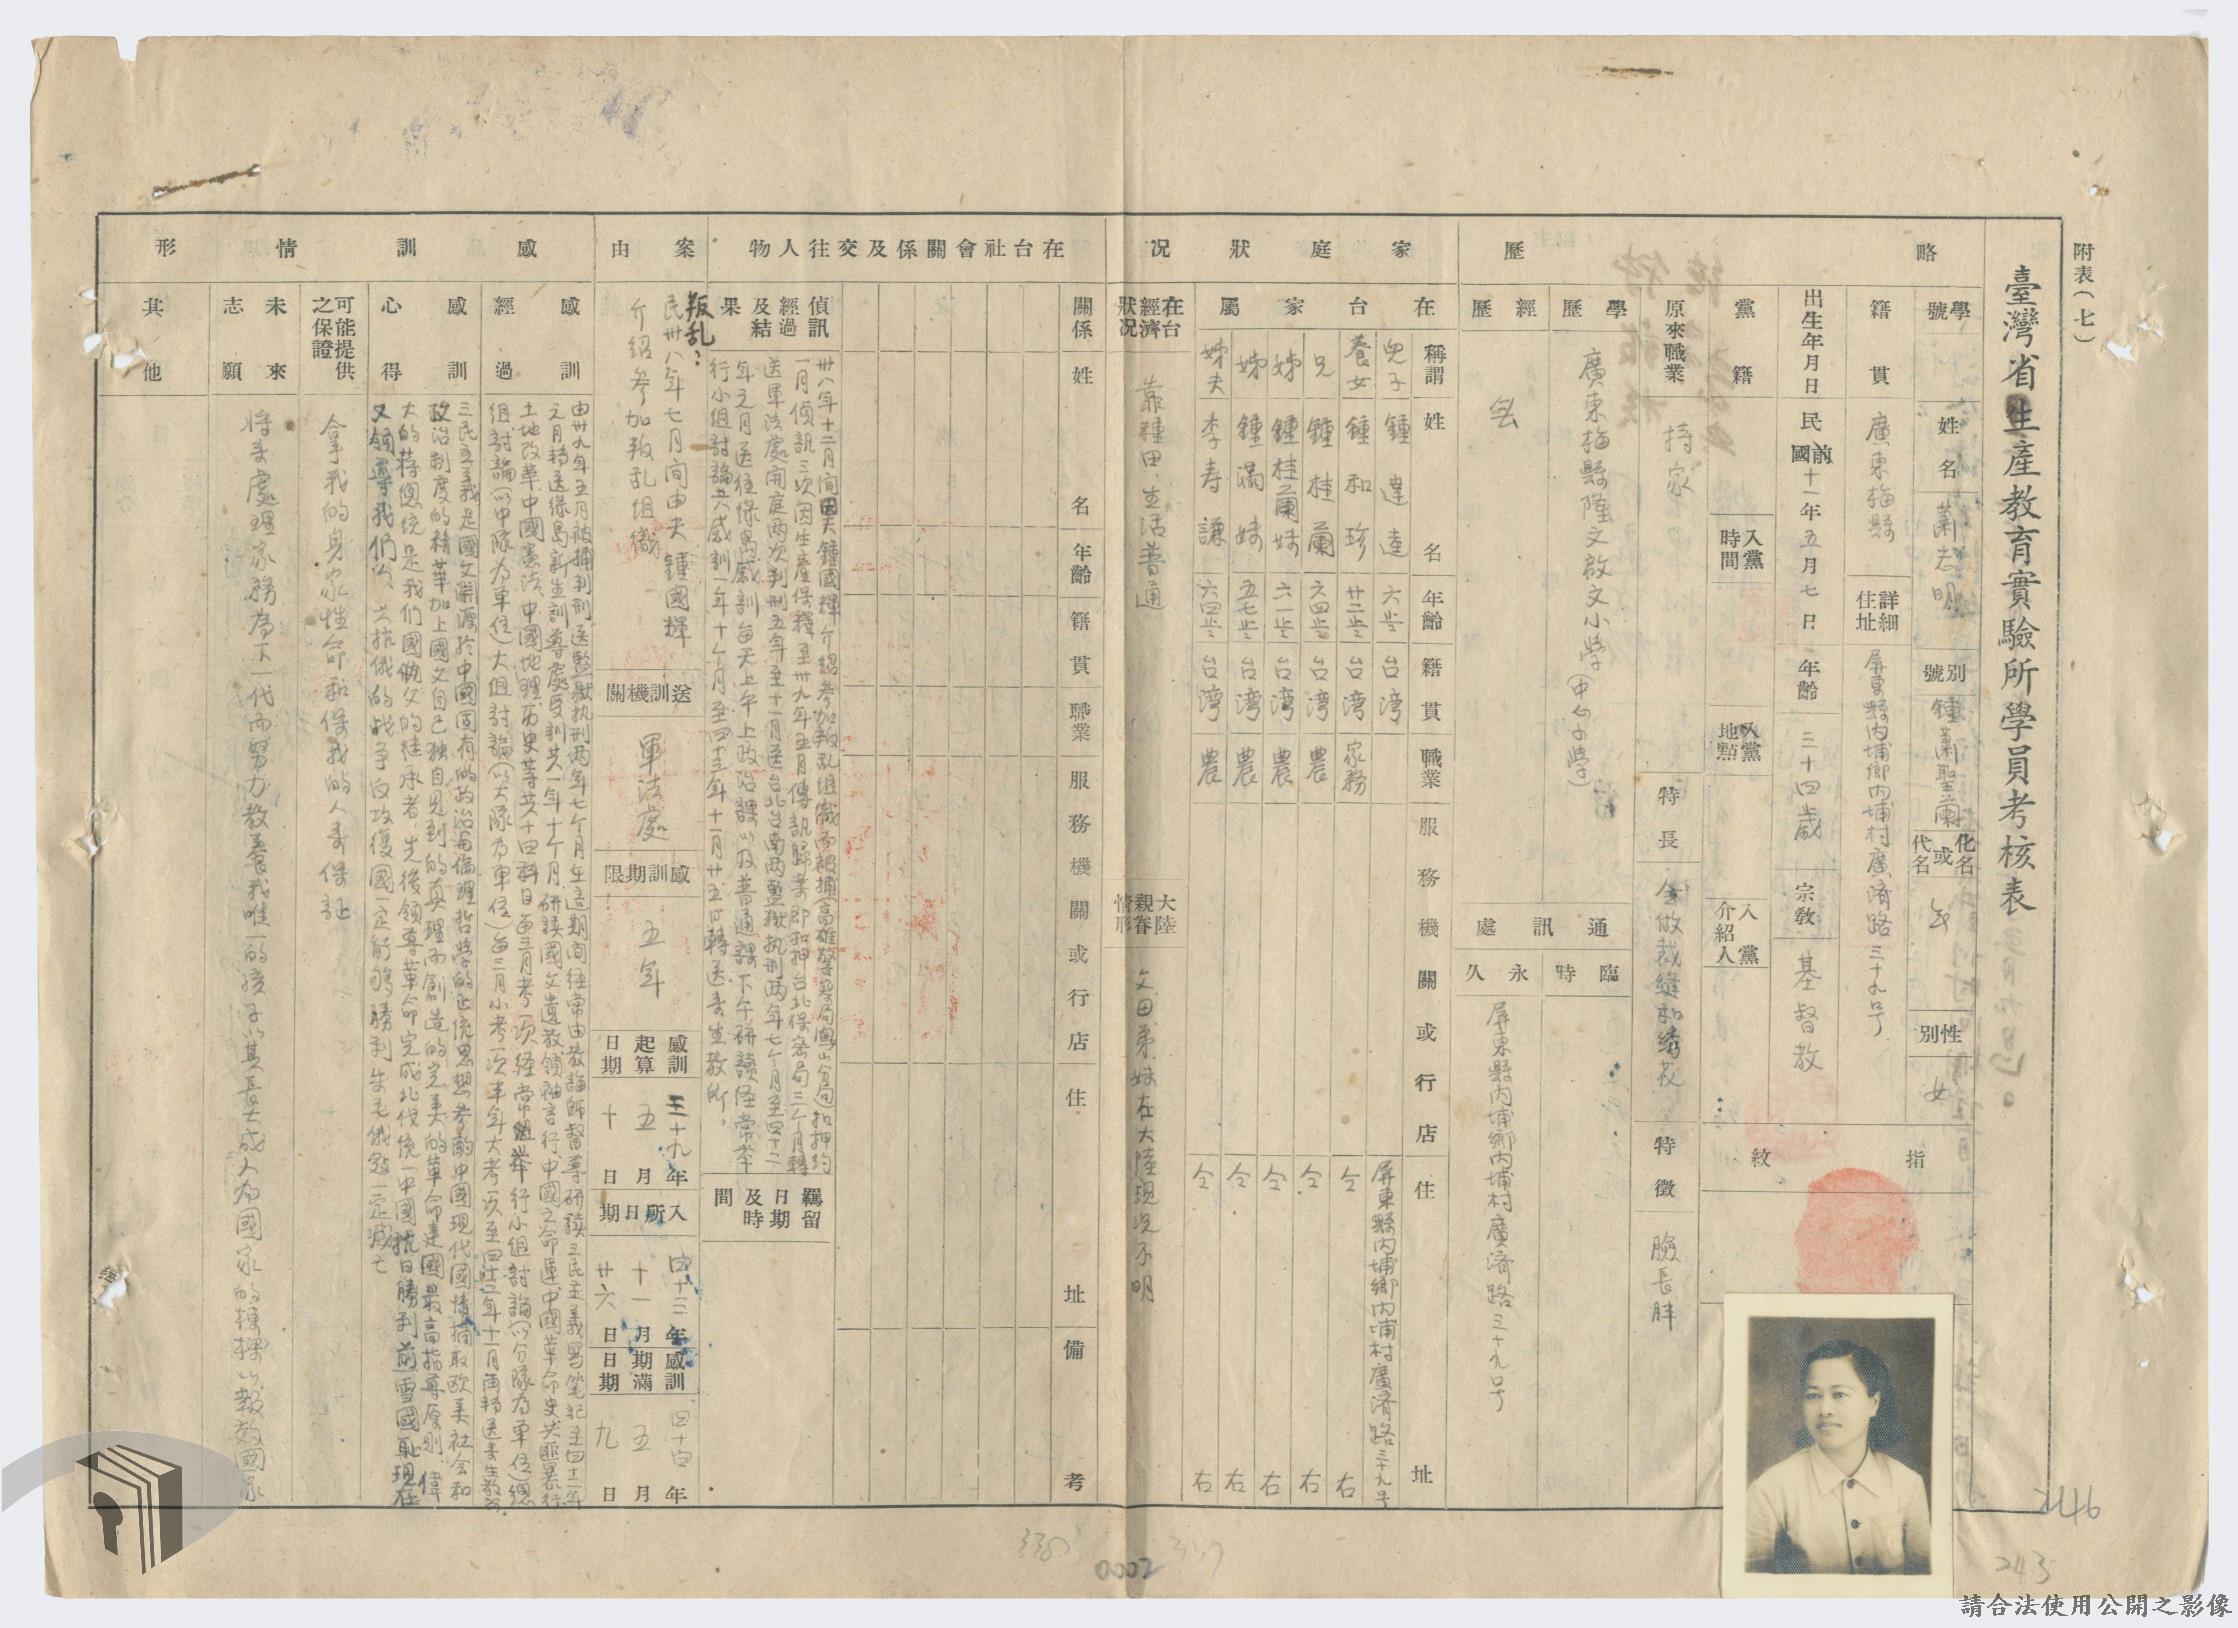 附表(七)
臺灣省生產教育實驗所學員考核表
略歷
學號
姓名
蕭志明
別號
鍾蕭聖蘭
化名或代名
無
性別
女
籍貫
廣東梅縣
詳細住址
屏東縣內埔鄉內埔村廣济路三十九号
出生年月日
民國前十一年五月七日
年齡
三十四歲
宗教
基督教
指紋
黨籍
入黨時間
入黨地點
入黨介紹人
原來職業
持家
特長
會做裁縫和綉花
特徵
臉長胖
學歷
廣東梅縣隆文啟文小學(中心小學)
經歷
無
通訊處
臨時
永久
屏東縣內埔鄉內埔村廣济路三十九号
家庭狀況
在台家屬
稱謂
姓名
年齡
籍貫
職業
服務機關或行店
住址
兒子
鍾達達
六岁
台湾
屏東縣內埔鄉內埔村廣济路三十九号
養女
鍾和珍
廿二岁
台湾
家務
仝右
兄
鍾桂蘭
六四岁
台湾
農
仝右
姊
鍾桂蘭妹
六一岁
台湾
農
仝右
姊
鍾滿妹
五七岁
台湾
農
仝右
姊夫
李寿謙
六四岁
台湾
農
仝右
在台經濟狀況
靠種田.生活普通
大陸親眷情形
文田弟.妹在大陸現况不明
在台社會關係及交往人物
關係
姓名
年齡
籍貫
職業
服務機關或行店
住址
備考
案由
偵訊經過及結果
卅八年十二月間因夫鍾國輝介紹參加叛乱組織而被捕(高雄警察局鳳山分局)扣押約
一月偵訊三次因生產保釋至卅九年五月傳訊歸案即扣押台北保密局三个月轉
送軍法處開庭两次判刑五年至十一月送台北台南两監獄执刑两年七个月至四十二
年元月送往绿島感訓每天上午上政治課以及普通課下午研讀经常举
行小組討論共感訓一年十个月至四十三年十一月廿五日轉送来生教所。
羈留日期及時間
叛乱:
民卅八年七月間由夫鍾國揮
介紹參加叛乱組織
送訓機關
軍法處
感訓期限
五年
感訓起算日期
三十九年五月十日
入所日期
四十三年十一月廿六日
感訓期滿日期
四十四年五月九日
感訓情形
感訓經過
由卅九年五月被捕判刑送監獄执刑两年七个月在這期間经常由教誨師督導研讀三民主義寫笔記至四十二年
元月轉送绿島新生訓導處受訓共一年十个月.研讀國文遺教領袖言行中國之命運中國革命史共匪暴行
土地改革中國憲法.中國地理.历史等共十四科目每三月考一次经常组举行小組討論(以分隊为單位)總
組討論(以中隊为單位)大組討論(以大隊为單位)每三月小考一次半年大考一次至四十三年十一月再轉送来生教所.
感訓心得
三民主義是國父淵源於中國固有的政治倫理哲學的正统思想参酌中國現代國情摘取欧美社会和
政治制度的精華加上國父自己独自見到的真理而創造的完美的革命建國最高指導原則.偉
大的蒋總统是我们國父的继承者.先後領導革命完成北伐统一中國抗日勝利前雪國恥現在
又領導我們反共抗俄的战爭反攻復國一定能够勝利朱毛俄寇一定滅亡
可能提供之保證
拿我的身家性命和保我的人来保証
未來志願
將来處理家務为下一代而努力教養我唯一的孩子以其長大成人为國家的棟樑以報效國家
其他
246
243
0002
339
請合法使用公開之影像